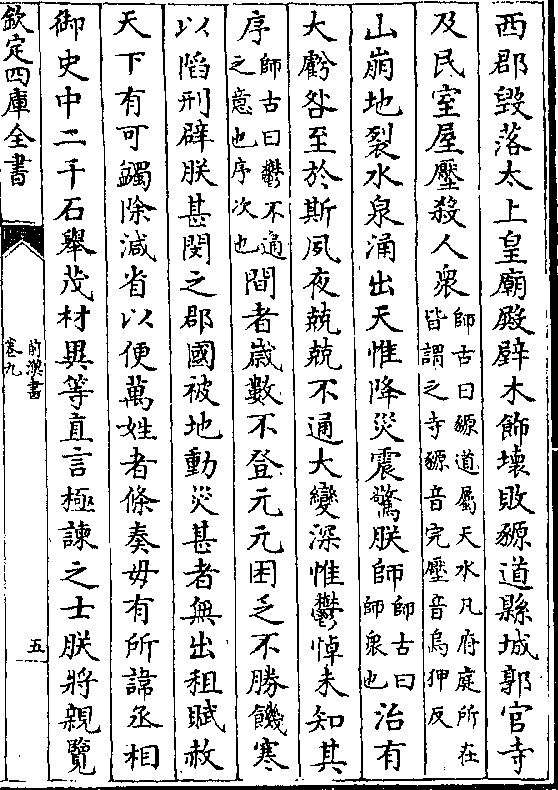 西郡毀落太上皇廟殿壁木飾壞敗豲道縣城郭官寺
及民室屋壓殺人衆師古曰豲道屬天水凡府庭所在皆謂之寺豲音完壓音烏狎反
山崩地裂水泉涌出天惟降災震驚朕師師古曰師衆也治有
大虧咎至於斯夙夜兢兢不通大變深惟鬱悼未知其
序師古曰鬱不通之意也序次也間者歲數不登元元困乏不勝饑寒
以陷刑辟朕甚閔之郡國被地動災甚者無出租賦赦
天下有可蠲除減省以便萬姓者條奏毋有所諱丞相
御史中二千石舉茂材異等直言極諫之士朕將親覽
欽定四庫全書
前漢書
卷九
五